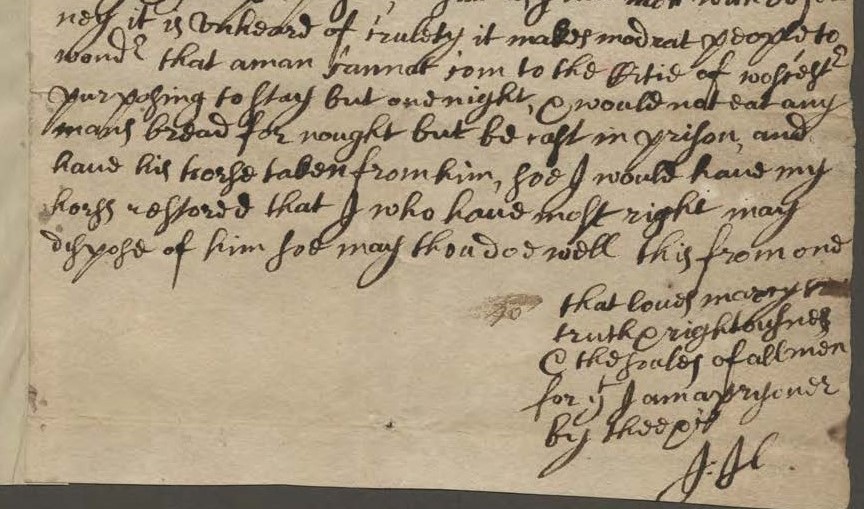 ney it is vnheard of crulety it makes modrat people to
wondr that a man cannot com to the Citie of wostestr
purposing to stay but one night, & would not eat any
mans bread for nought but be cast in prison, and
haue his horse taken from him, soe I would haue my
horss restored that I who haue most right may
dispose of him soe may thou doe well this from one
that loues marcy
truth & rightousnes
& the soules of all men
for yt I am a prisoner
by thee